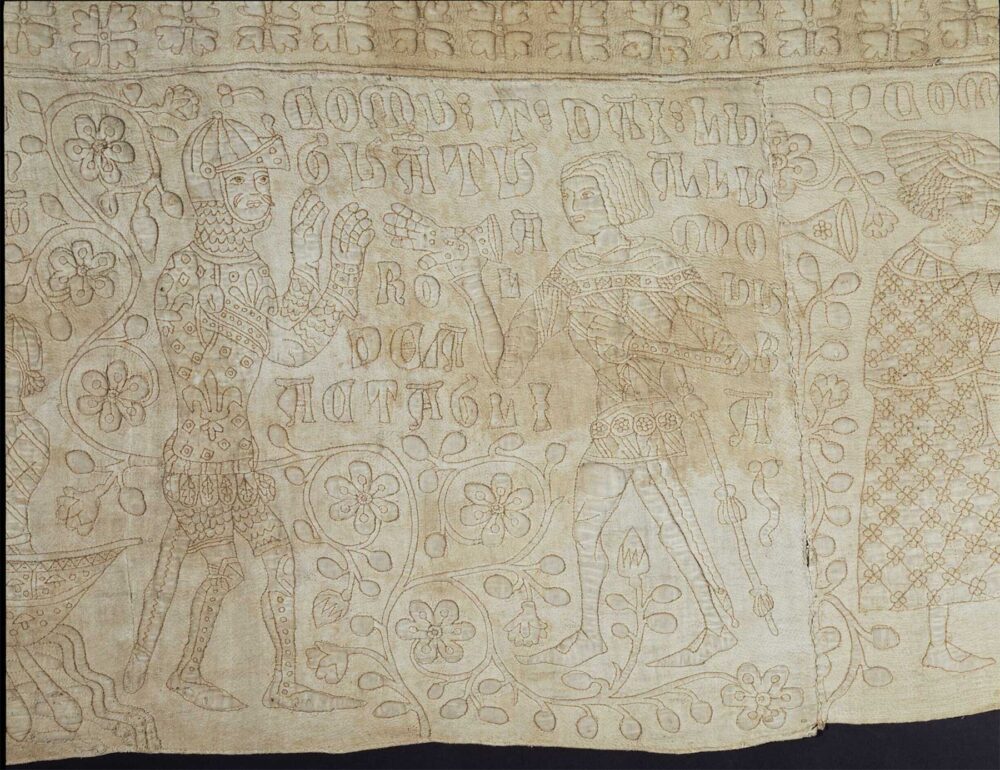 COMU: T: DAI: LU
GUĀTU ALLU
A MO
RO L LU
DELA B
ACTAGLI A
COM